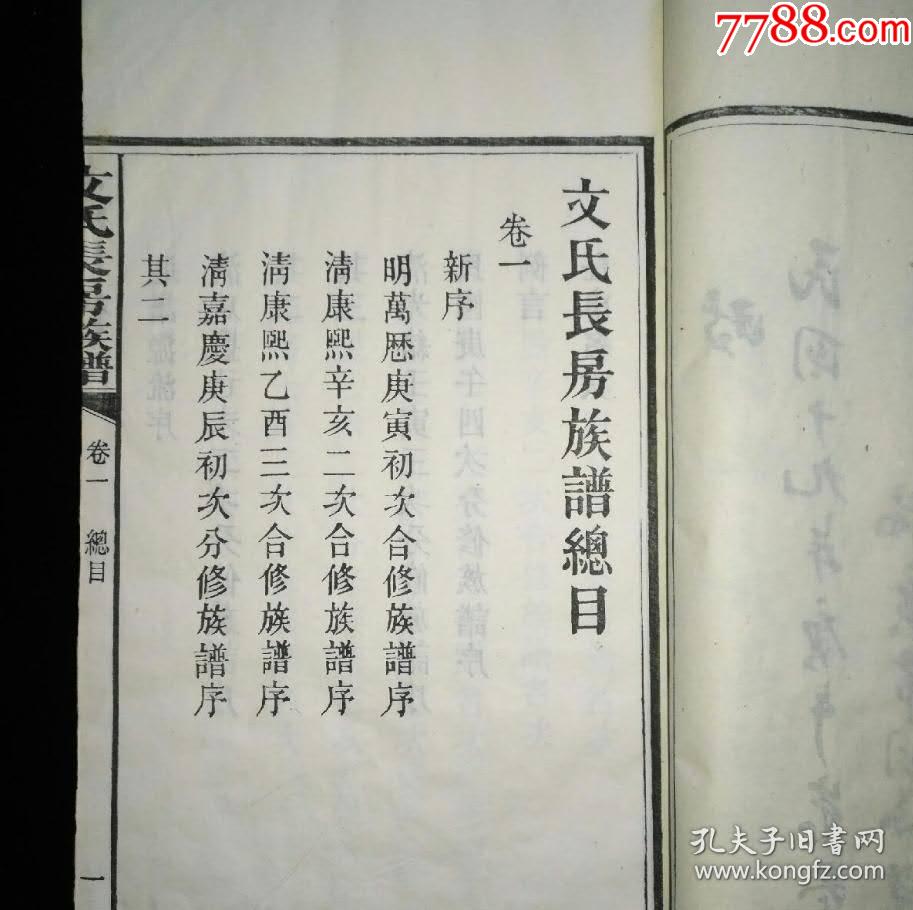 7788.com
文氏長房族譜總目
卷一
新序
明萬厯庚寅初次合修族譜序
淸康熙辛亥二次合修族譜序
淸康熙乙酉三次合修族譜序
淸嘉慶庚辰初次分修族譜序
其二
文氏長房族譜
卷一
總目
一
民國十九年庚午
孔夫子旧书网
www.kongfz.com